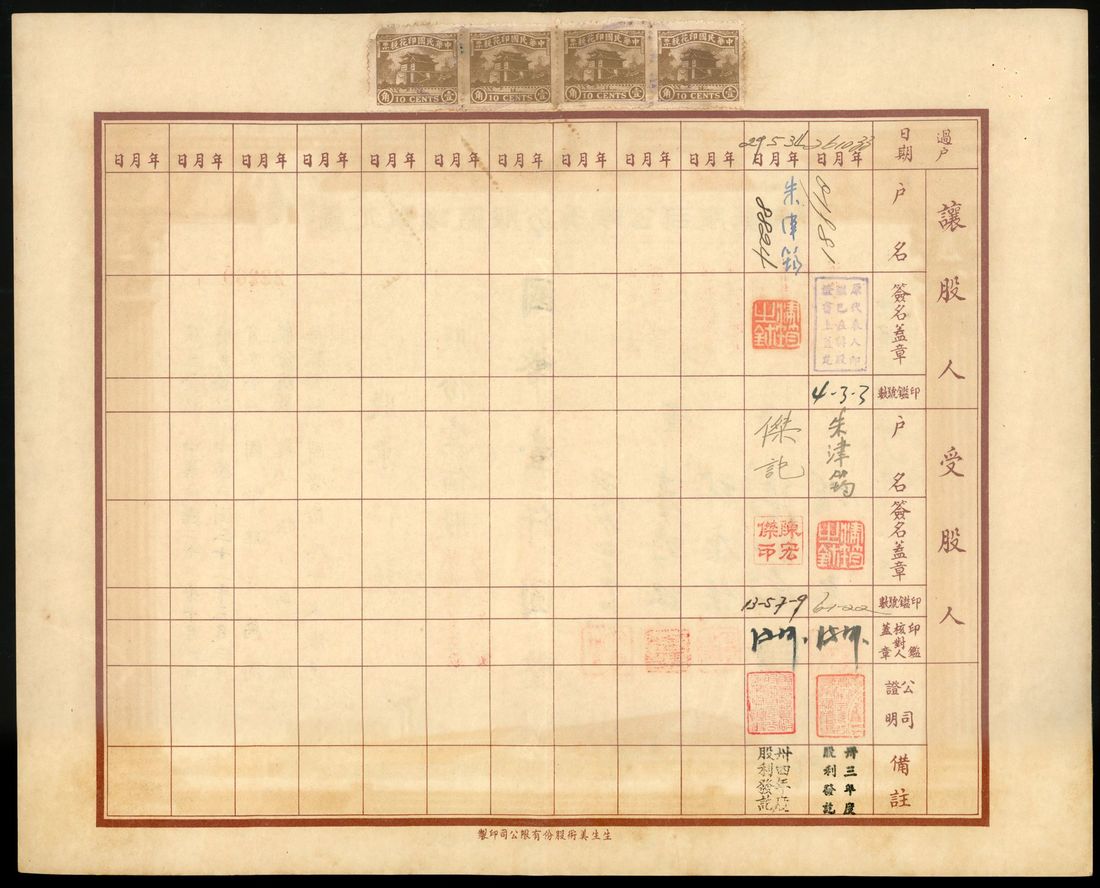 中華民國印花稅票 中華民國印花稅票 中華民國印花稅票 中華民國印花稅票
角 10 CENTS 壹 角 10 CENTS 壹 角 10 CENTS 壹 角 10 CENTS 壹
過戶
日期
年月日 年月日 年月日 年月日 年月日 年月日 年月日 年月日 年月日 年月日 年月日 年月日
29 5 34
讓股人
戶名
朱津筠
8824
簽名蓋章
印鑑號數
4-3-3
受股人
戶名
朱津筠
傑記
簽名蓋章
陳宏傑印
印鑑號數
13-57-9
印鑑核對人蓋章
公司證明
備註
卅三年度
股利發訖
卅四年度
股利發訖
生生美術股份有限公司印製